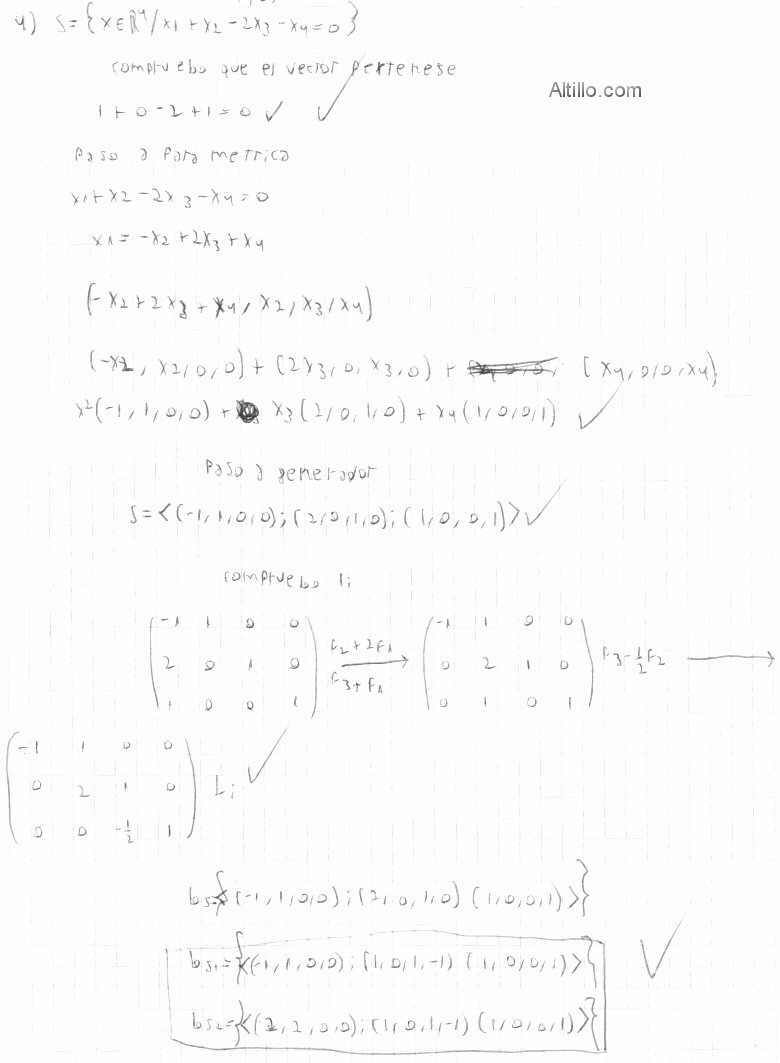 4) S = {x ∈ ℝ⁴ / x1 + x2 - 2x3 - x4 = 0}
Altillo.com
compruebo que el vector pertenese
1 + 0 - 2 + 1 = 0 ✓ ✓
Paso a Parametrica
x1 + x2 - 2x3 - x4 = 0
x1 = -x2 + 2x3 + x4
(-x2 + 2x3 + x4, x2, x3, x4)
(-x2, x2, 0, 0) + (2x3, 0, x3, 0) + (x4, 0, 0, x4)
x2(-1, 1, 0, 0) + x3(2, 0, 1, 0) + x4(1, 0, 0, 1) ✓
Paso a generador
S = <(-1, 1, 0, 0); (2, 0, 1, 0); (1, 0, 0, 1)> ✓
compruebo li
-1 1 0 0
2 0 1 0
1 0 0 1
F2 + 2F1
F3 + F1
-1 1 0 0
0 2 1 0
0 1 0 1
F3 - 1/2 F2
-1 1 0 0
0 2 1 0
0 0 -1/2 1
Li ✓
bs = {<(-1, 1, 0, 0); (2, 0, 1, 0) (1, 0, 0, 1)>}
bs1 = {<(-1, 1, 0, 0); (1, 0, 1, -1) (1, 0, 0, 1)>} ✓
bs2 = {<(2, 2, 0, 0); (1, 0, 1, -1) (1, 0, 0, 1)>}